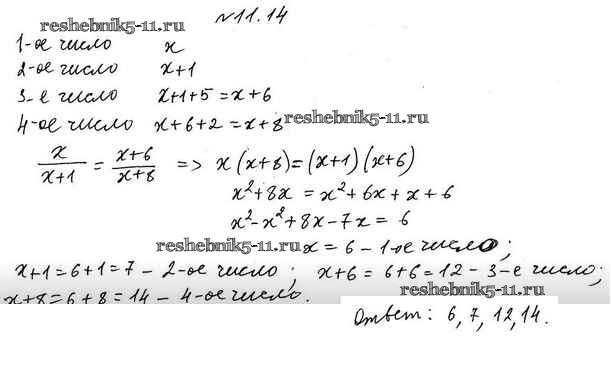 N 11.14
reshebnik5-11.ru
1-ое число x
2-ое число x+1
3-е число x+1+5=x+6
4-ое число x+6+2=x+8
reshebnik5-11.ru
x/(x+1) = (x+6)/(x+8) => x(x+8)=(x+1)(x+6)
x²+8x = x²+6x+x+6
x²-x²+8x-7x = 6
reshebnik5-11.ru x = 6 - 1-ое число;
x+1=6+1=7 - 2-ое число; x+6=6+6=12 - 3-е число;
reshebnik5-11.ru
x+8=6+8=14 - 4-ое число.
Ответ: 6, 7, 12, 14.